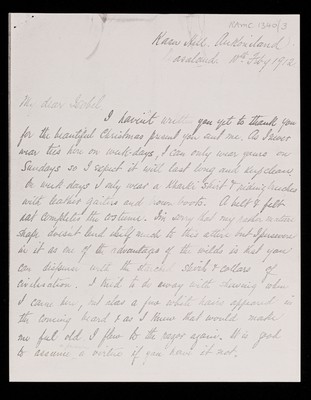 KAMC 1340/3
Kaew Hill. Auckland
10th Feby 1912
My dear
I haven't written you yet to thank you
for the beautiful Christmas present you sent me, As I never
wear ties here on week-days, I can only wear yours on
Sundays so I expect it will last long and keep clean.
On week days I only wear a Khaki Shirt & riding breeches
with leather gaiters and brown boots. A belt & felt
hat completes the costume. I'm sorry that my rather mature
shape doesn't lend itself much to this attire but I persevere
in it as one of the advantages of the wilds is that you
can dispense with the starched shirts & collars of
civilisation. I tried to do away with shaving when
I came here, but alas a few white hairs appeared in
the coming beard & as I knew that would make
me feel old I flew to the razor again. It is good
to assume a virtue if you have it not.